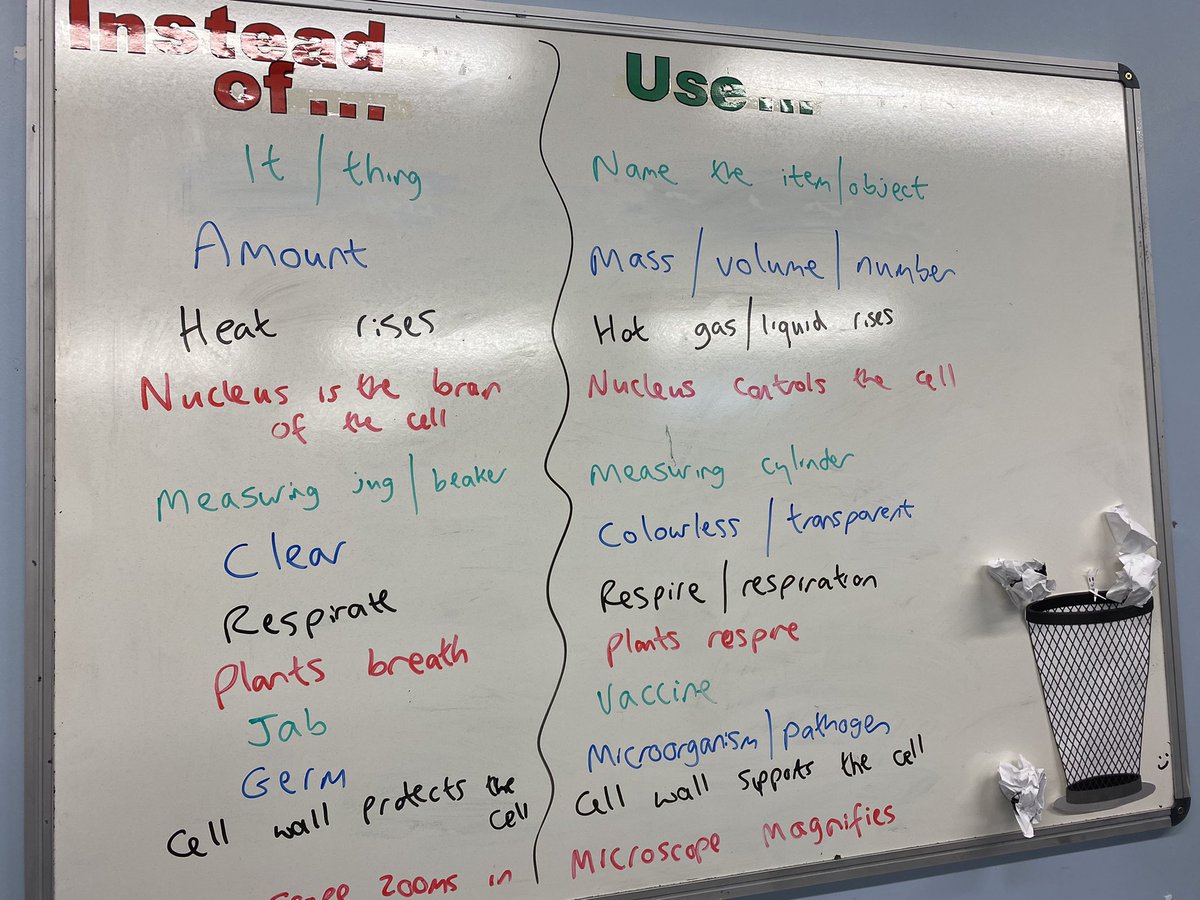 Instead
of...
Use...
It / thing
Name the item/object
Amount
Mass / volume / number
Heat rises
Hot gas/liquid rises
Nucleus is the bran
of the cell
Nucleus controls the cell
Measuring jug / beaker
Measuring cylinder
Clear
Colourless / transparent
Respirate
Respire / respiration
Plants breath
Plants respire
Jab
Vaccine
Germ
Microorganism / pathogen
Cell wall protects the
cell
Cell wall supports the cell
zooms in
Microscope magnifies